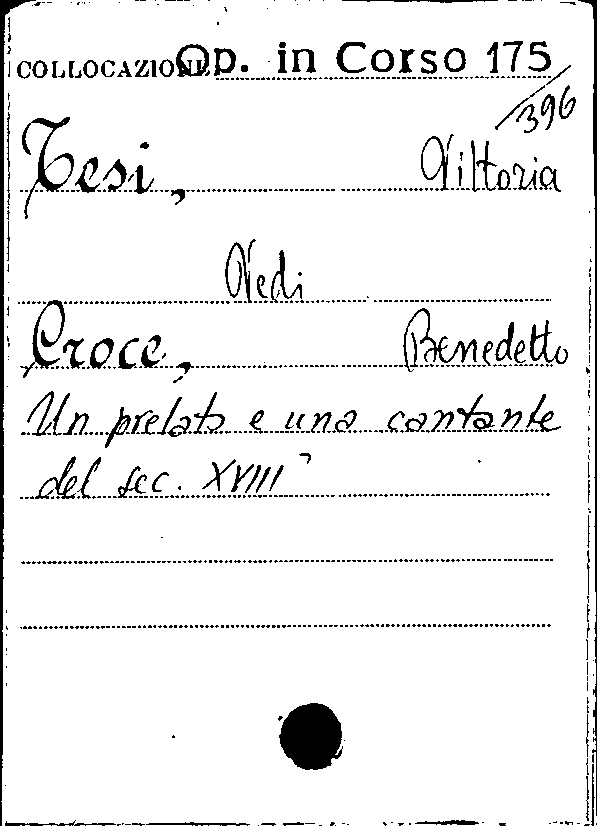 COLLOCAZIONE Op. in Corso 175
/396
Tesi, Vittoria
Vedi
Croce, Benedetto
Un prelato e una cantante
del sec. XVIII°